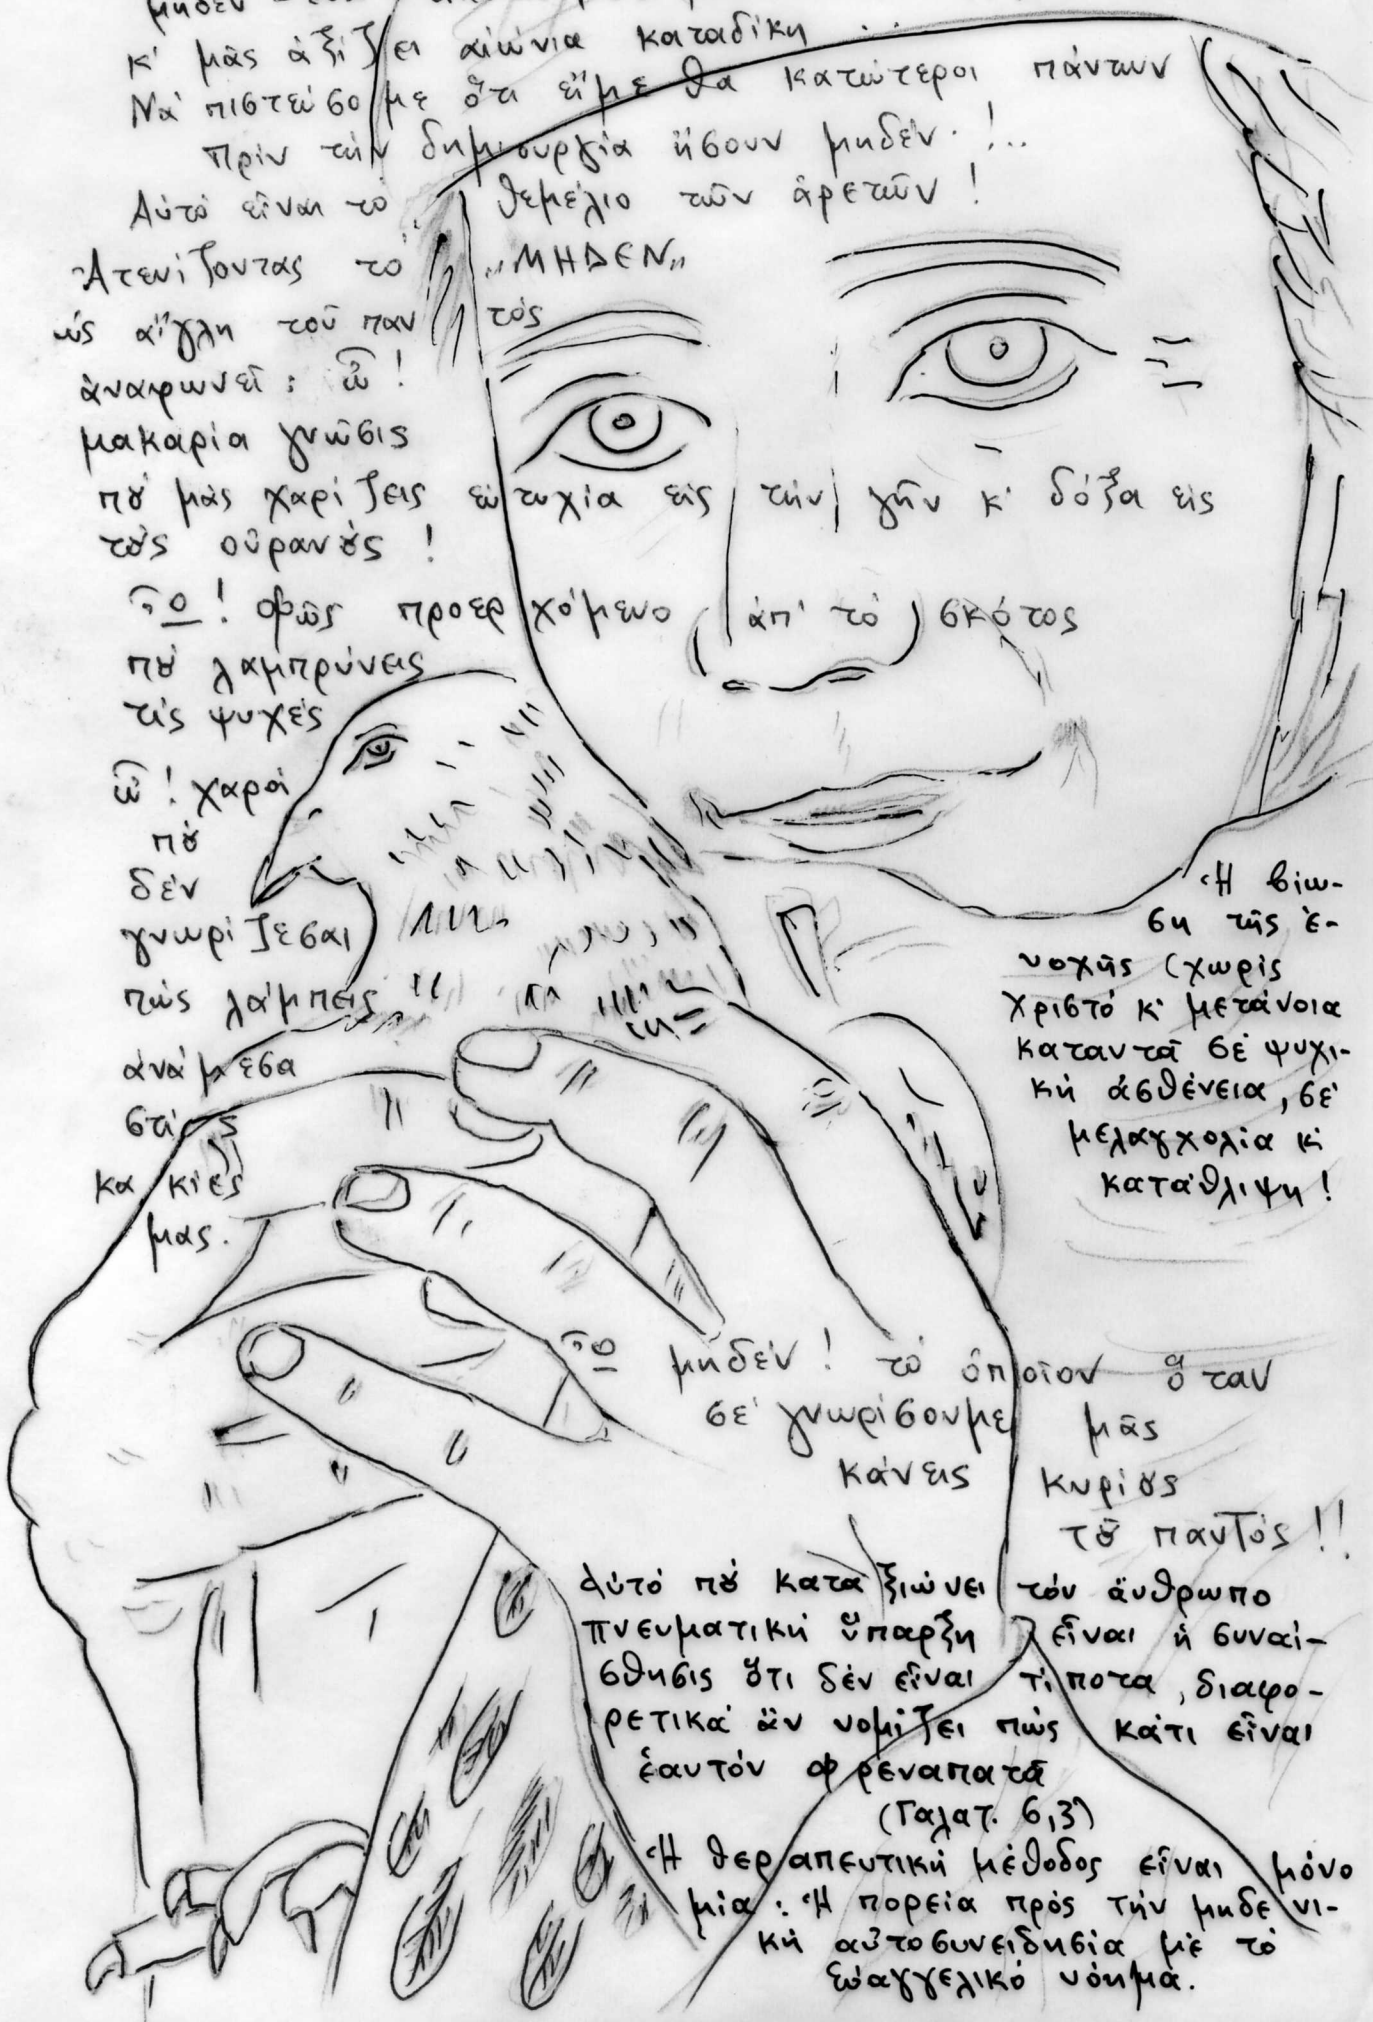 μηδέν
κ' μᾶς ἀξίζει αἰώνια καταδίκη
Νά πιστεύσομε ὅτι εἴμεθα κατώτεροι πάντων
Πρίν τήν δημιουργία ἤσουν μηδέν. !..
Αὐτό εἶναι τό θεμέλιο τῶν ἀρετῶν !
Ἀτενίζοντας τό „ΜΗΔΕΝ„
ὡς αἴγλη τοῦ παντός
ἀναφωνεῖ : ὦ !
μακαρία γνῶσις
πȣ́ μᾶς χαρίζεις εὐτυχία εἰς τήν γῆν κ' δόξα εἰς
τȣ́ς οὐρανȣ́ς !
ὦ ! φῶς προερχόμενο ἀπ' τό σκότος
πȣ́ λαμπρύνεις
τίς ψυχές
ὦ ! χαρά
πȣ́
δέν
γνωρίζεσαι
πώς λάμπεις
ἀνάμεσα
στίς
κακίες
μας.
Ἡ βίω-
ση τῆς ἐ-
νοχῆς (χωρίς
Χριστό κ' μετάνοια
καταντᾶ σέ ψυχι-
κή ἀσθένεια, σέ
μελαγχολία κ'
κατάθλιψη !
Ὦ μηδέν ! τό ὁποῖον ὅταν
σέ γνωρίσουμε μᾶς
κάνεις κυρίȣς
τȣ͂ παντός !!
Αὐτό πȣ́ καταξιώνει τόν ἄνθρωπο
πνευματική ὕπαρξη εἶναι ἡ συναί-
σθησις ὅτι δέν εἶναι τίποτα, διαφο-
ρετικά ἄν νομίζει πώς κάτι εἶναι
ἑαυτόν φρεναπατᾶ
(Γαλατ. 6,3)
Ἡ θεραπευτική μέθοδος εἶναι μόνο
μία : Ἡ πορεία πρός τήν μηδενι-
κή αὐτοσυνειδησία μέ τό
εὐαγγελικό νόημα.